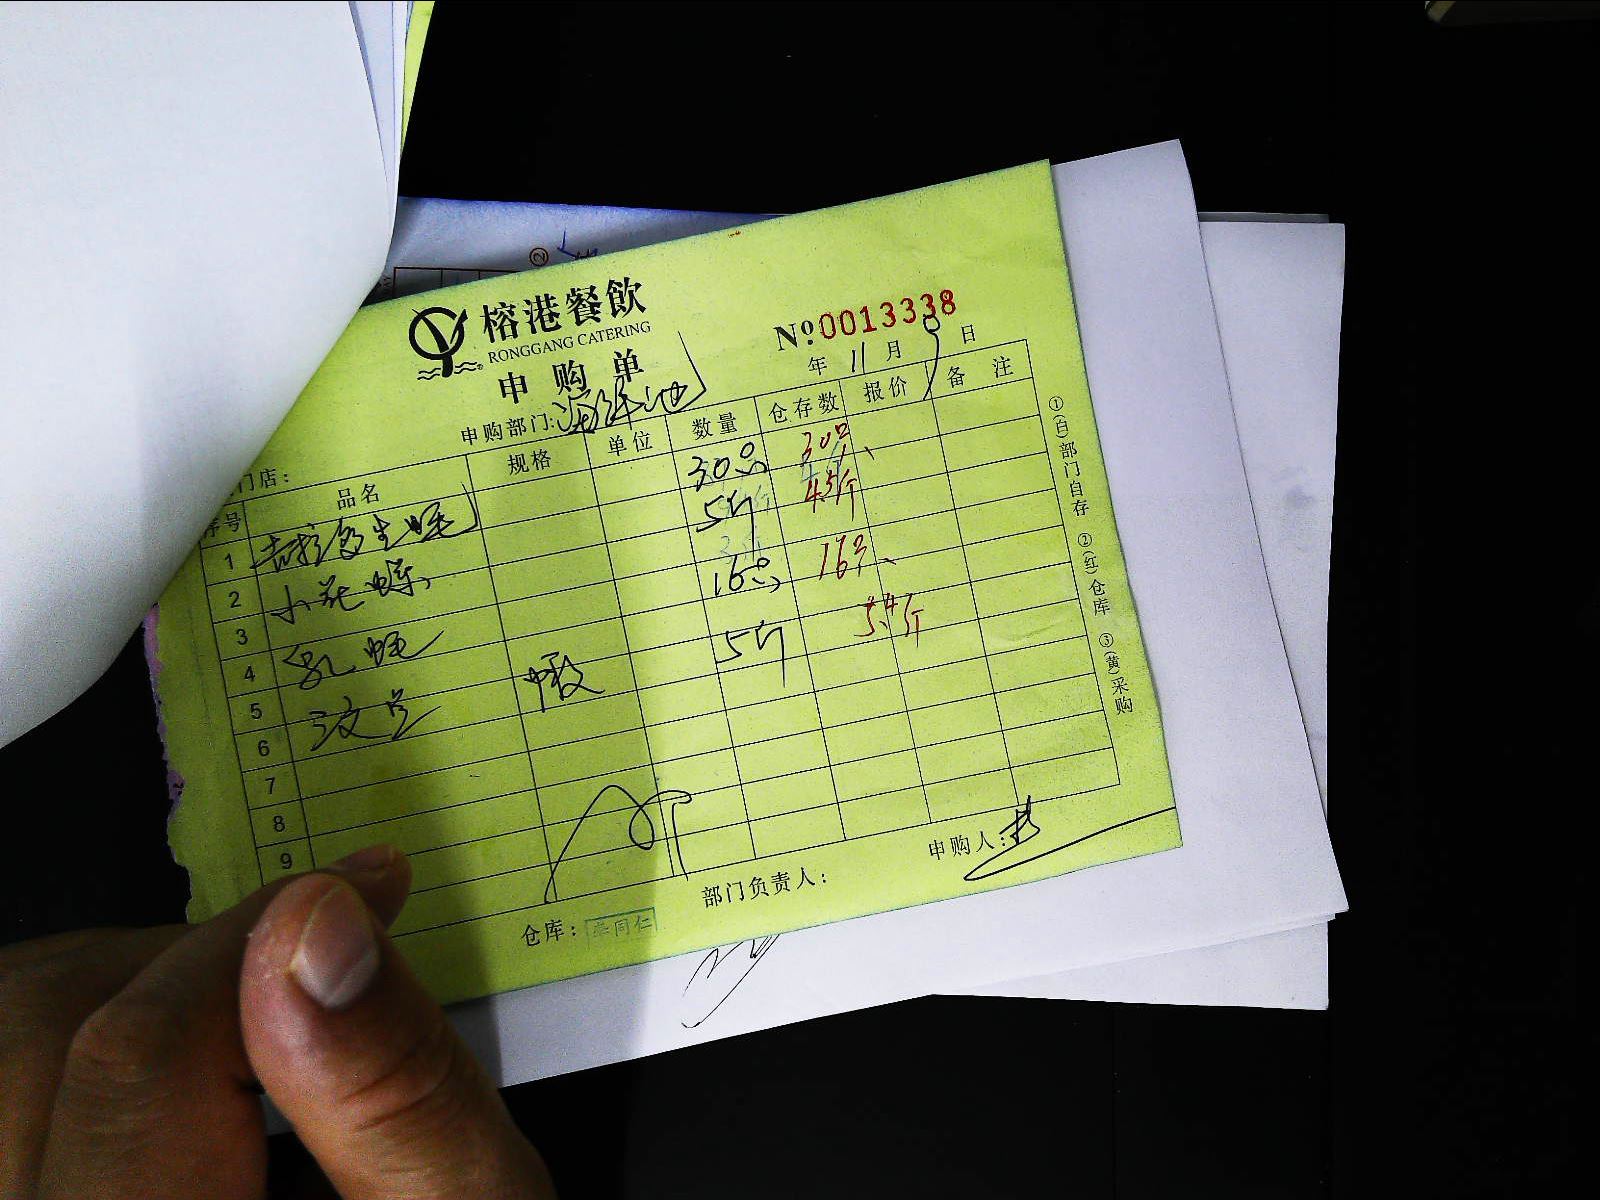 榕港餐飲
RONGGANG CATERING
申购单
№0013338
年 11 月 9 日
申购部门: 海鲜池
门店:
序号 品名 规格 单位 数量 仓存数 报价 备注
1 吉拉多生蚝 30只 30只
2 小花螺 5斤 4.5斤
3
4 乳蚝 16只 16只
5 5斤 5.4斤
6
7
8
9
仓库: 同仁
部门负责人:
申购人:
①(白)部门自存 ②(红)仓库 ③(黄)采购
②